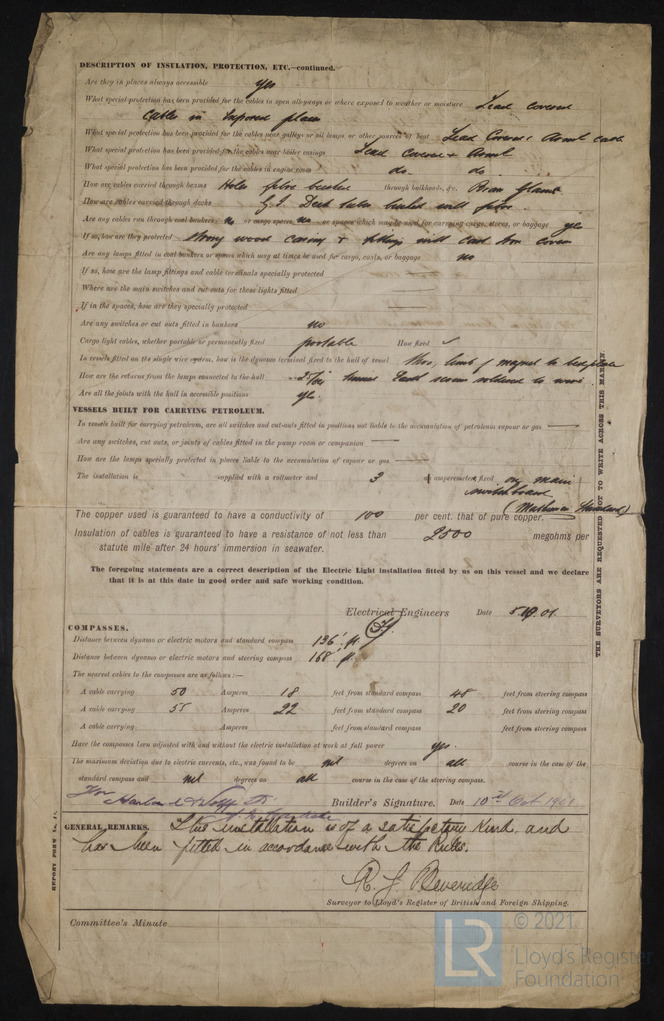 DESCRIPTION OF INSULATION, PROTECTION, ETC.—continued.
Are they in places always accessible yes
What special protection has been provided for the cables in open alleyways or where exposed to weather or moisture Lead covered
cables in exposed places
What special protection has been provided for the cables near galleys or oil lamps or other sources of heat Lead Covered & Arm'd cable
What special protection has been provided for the cables near boiler casings Lead covered & Arm'd
What special protection has been provided for the cables in engine room do. do.
How are cables carried through beams Holes fibre bushed through bulkheads, &c. Brass Glands
How are cables carried through decks G.I. Deck tubes bushed with fibre
Are any cables run through coal bunkers no or cargo spaces no or spaces which may be used for carrying cargo, stores, or baggage yes
If so, how are they protected strong wood casing & fittings with cast iron covers
Are any lamps fitted in coal bunkers or spaces which may at times be used for cargo, coals, or baggage no
If so, how are the lamp fittings and cable terminals specially protected
Where are the main switches and cut-outs for these lights fitted
If in the spaces, how are they specially protected
Are any switches or cut outs fitted in bunkers no
Cargo light cables, whether portable or permanently fixed portable How fixed
In vessels fitted on the single wire system, how is the dynamo terminal fixed to the hull of vessel limb of magnet to bedplate
How are the returns from the lamps connected to the hull screws soldered to wires
Are all the joints with the hull in accessible positions yes.
VESSELS BUILT FOR CARRYING PETROLEUM.
In vessels built for carrying petroleum, are all switches and cut-outs fitted in positions not liable to the accumulation of petroleum vapour or gas
Are any switches, cut outs, or joints of cables fitted in the pump room or companion
How are the lamps specially protected in places liable to the accumulation of vapour or gas
The installation is supplied with a voltmeter and 3 an amperemeter, fixed on main
switchboard
The copper used is guaranteed to have a conductivity of 100 per cent. that of pure copper.
Insulation of cables is guaranteed to have a resistance of not less than 2500 megohms per
statute mile after 24 hours' immersion in seawater.
The foregoing statements are a correct description of the Electric Light installation fitted by us on this vessel and we declare
that it is at this date in good order and safe working condition.
Electrical Engineers Date
COMPASSES.
Distance between dynamo or electric motors and standard compass 136 ft.
Distance between dynamo or electric motors and steering compass 168 ft.
The nearest cables to the compasses are as follows:—
A cable carrying 50 Amperes 18 feet from standard compass 48 feet from steering compass
A cable carrying 55 Amperes 22 feet from standard compass 20 feet from steering compass
A cable carrying Amperes feet from standard compass feet from steering compass
Have the compasses been adjusted with and without the electric installation at work at full power yes.
The maximum deviation due to electric currents, etc., was found to be nil degrees on all course in the case of the
standard compass and nil degrees on all course in the case of the steering compass.
For Harland & Wolff Ld
Builder's Signature. Date 10th Oct 1901
GENERAL REMARKS. This installation is of a satisfactory kind, and
has been fitted in accordance with the Rules.
R. J. Beveridge
Surveyor to Lloyd's Register of British and Foreign Shipping.
Committee's Minute
THE SURVEYORS ARE REQUESTED NOT TO WRITE ACROSS THIS MARGIN.
LR
© 2021
Lloyd's Register
Foundation